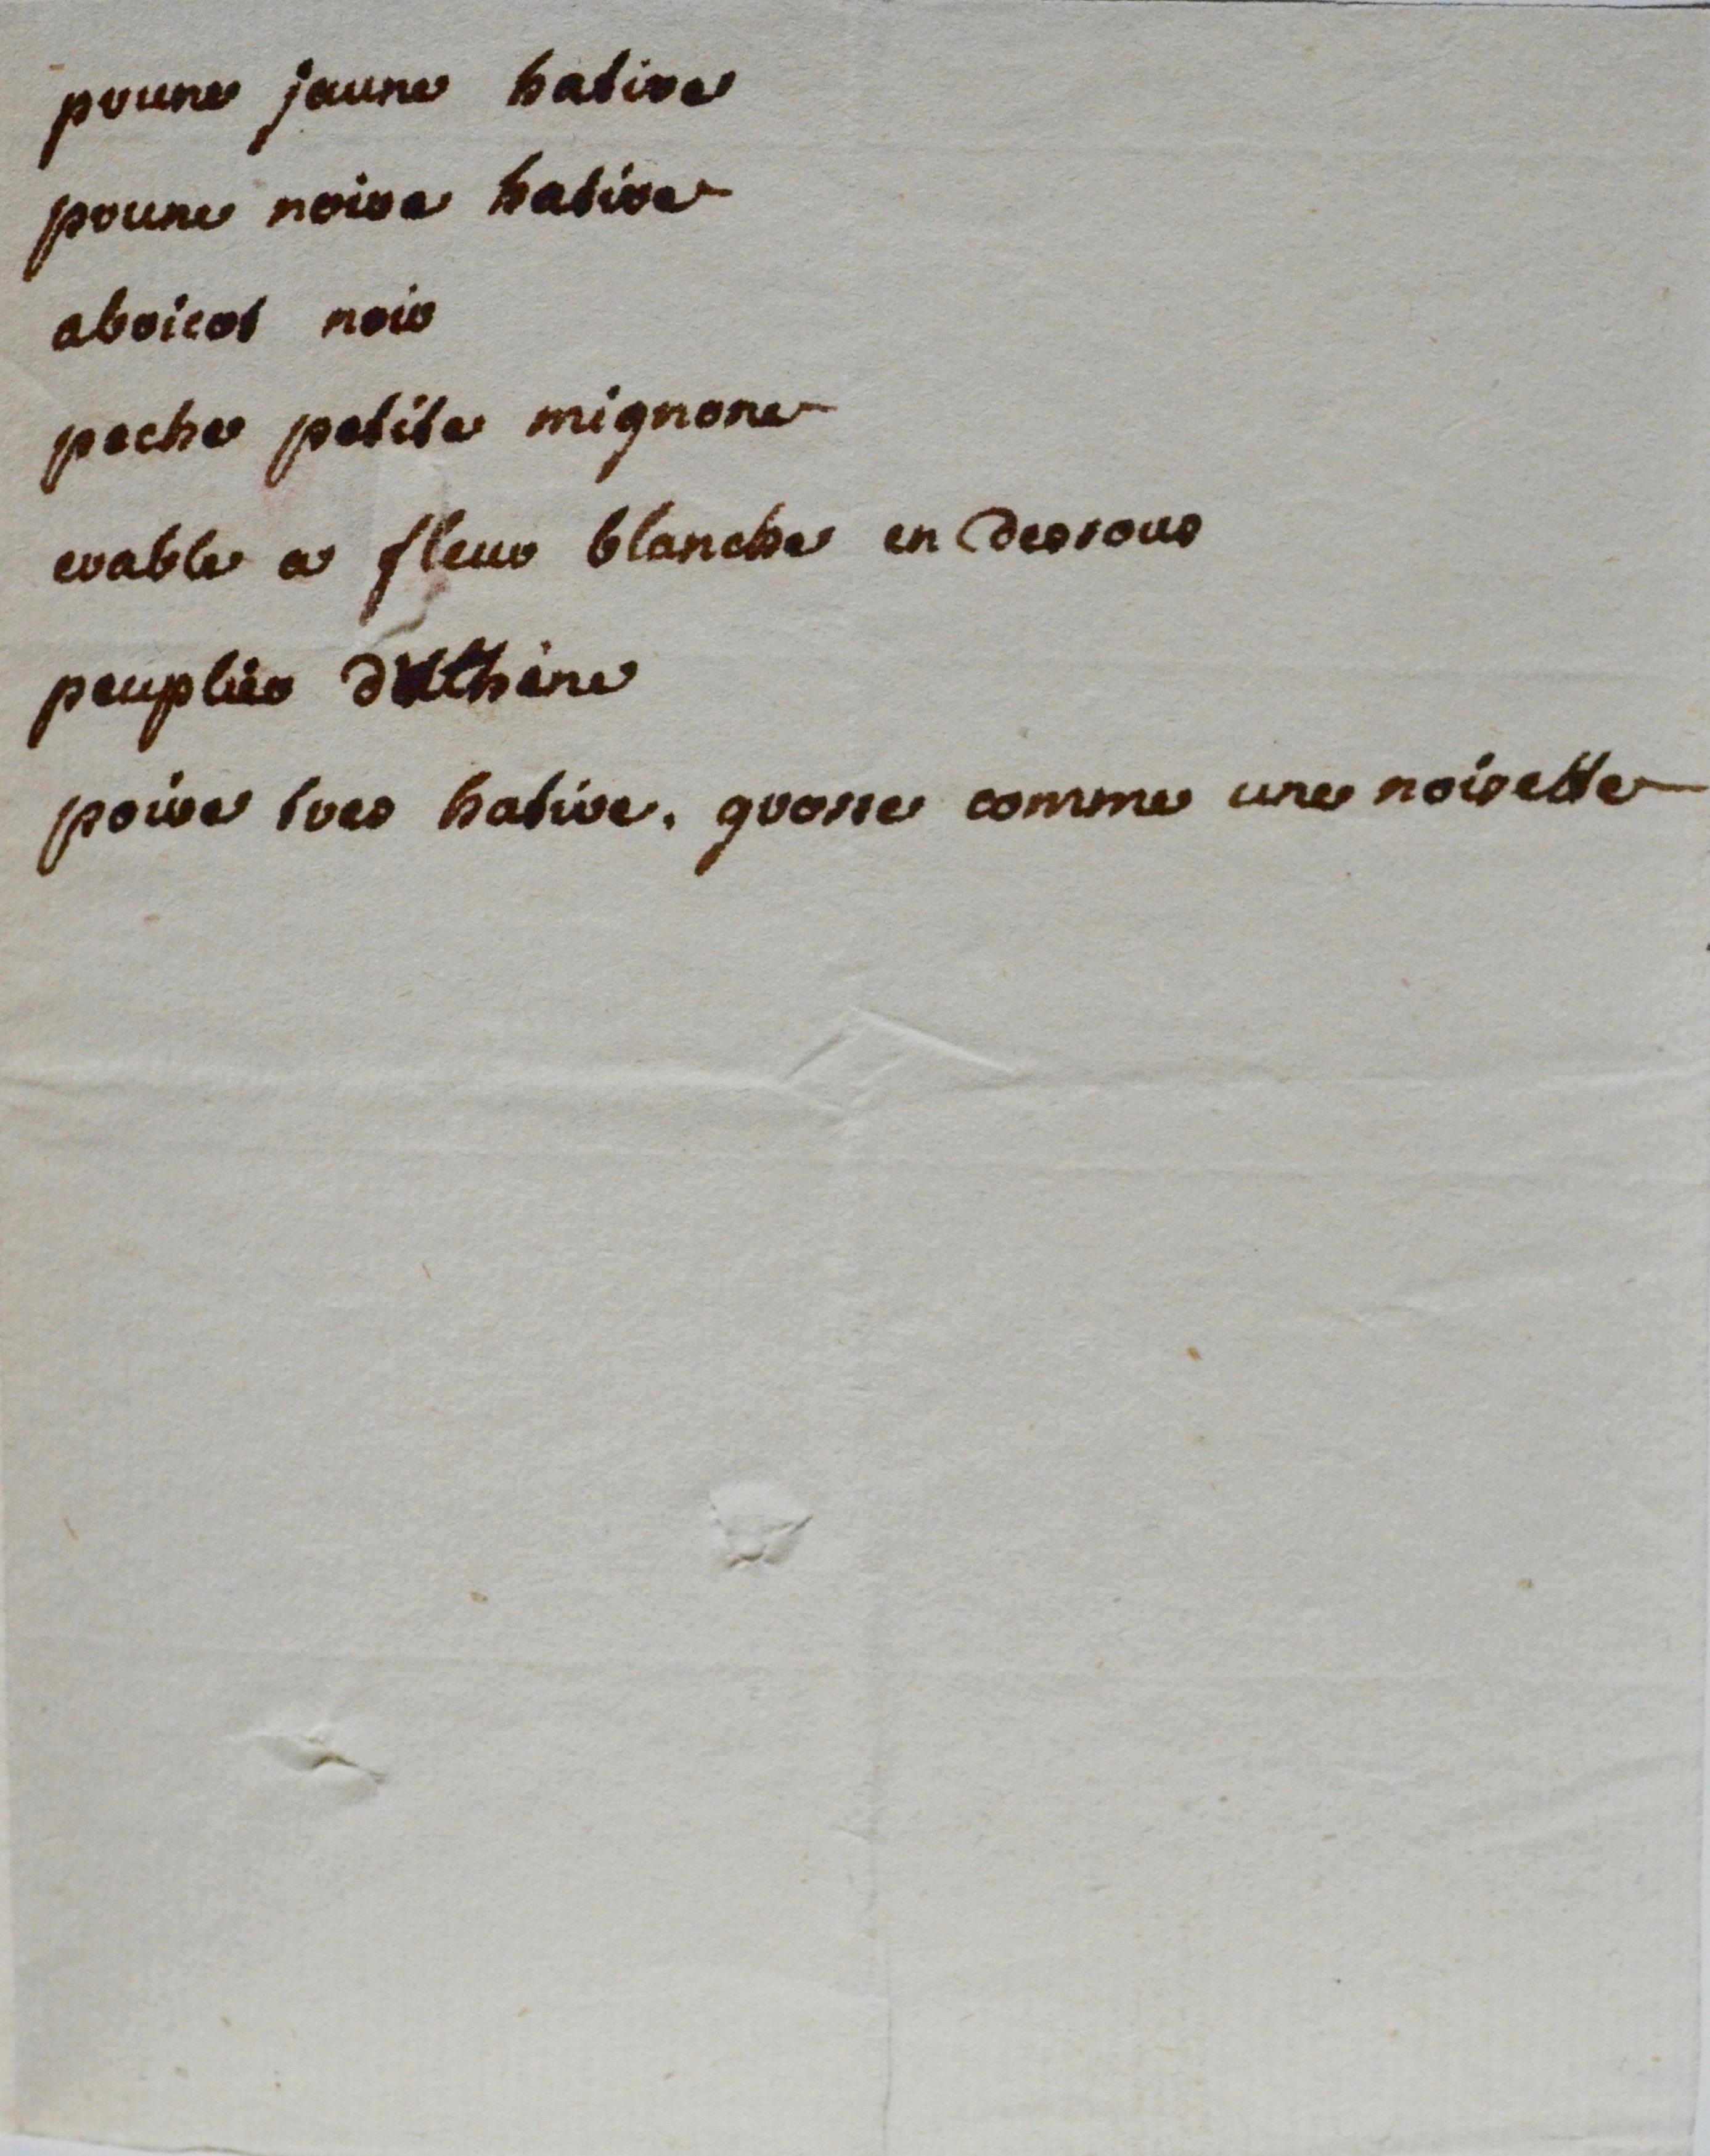 prune jaune hative
prune noire hative
abricot noir
peche petite mignone
erable a fleur blanche en dessous
peuplier d'athène
poire tres hative. grosse comme une noisette